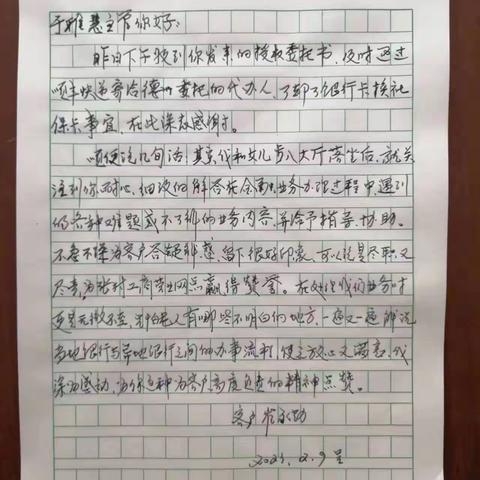 于雅慧主管你好：
昨日下午收到你发来的授权委托书，及时通过
顺丰快递寄给德州委托的代办人，了却了银行卡换社
保卡事宜，在此深表感谢。
顺便说几句话，其实我和女儿步入大厅落坐后，就关
注到你耐心、细致的解答在余客业务办理过程中遇到
的各种难题或不了解的业务内容，并给予指导、协助。
不急不燥为客户答疑解惑，留下很好印象，可以说是尽职又
尽责，为张村工商营业网点赢得赞誉。在处理我们业务时
更是无微不至，老人有哪些不明白的地方，一遍又一遍解说
当地银行与异地银行之间的办事流程，使之放心又满意，我
深为感动，为你这种为客户高度负责的精神点赞。
客户
2021.2.9呈